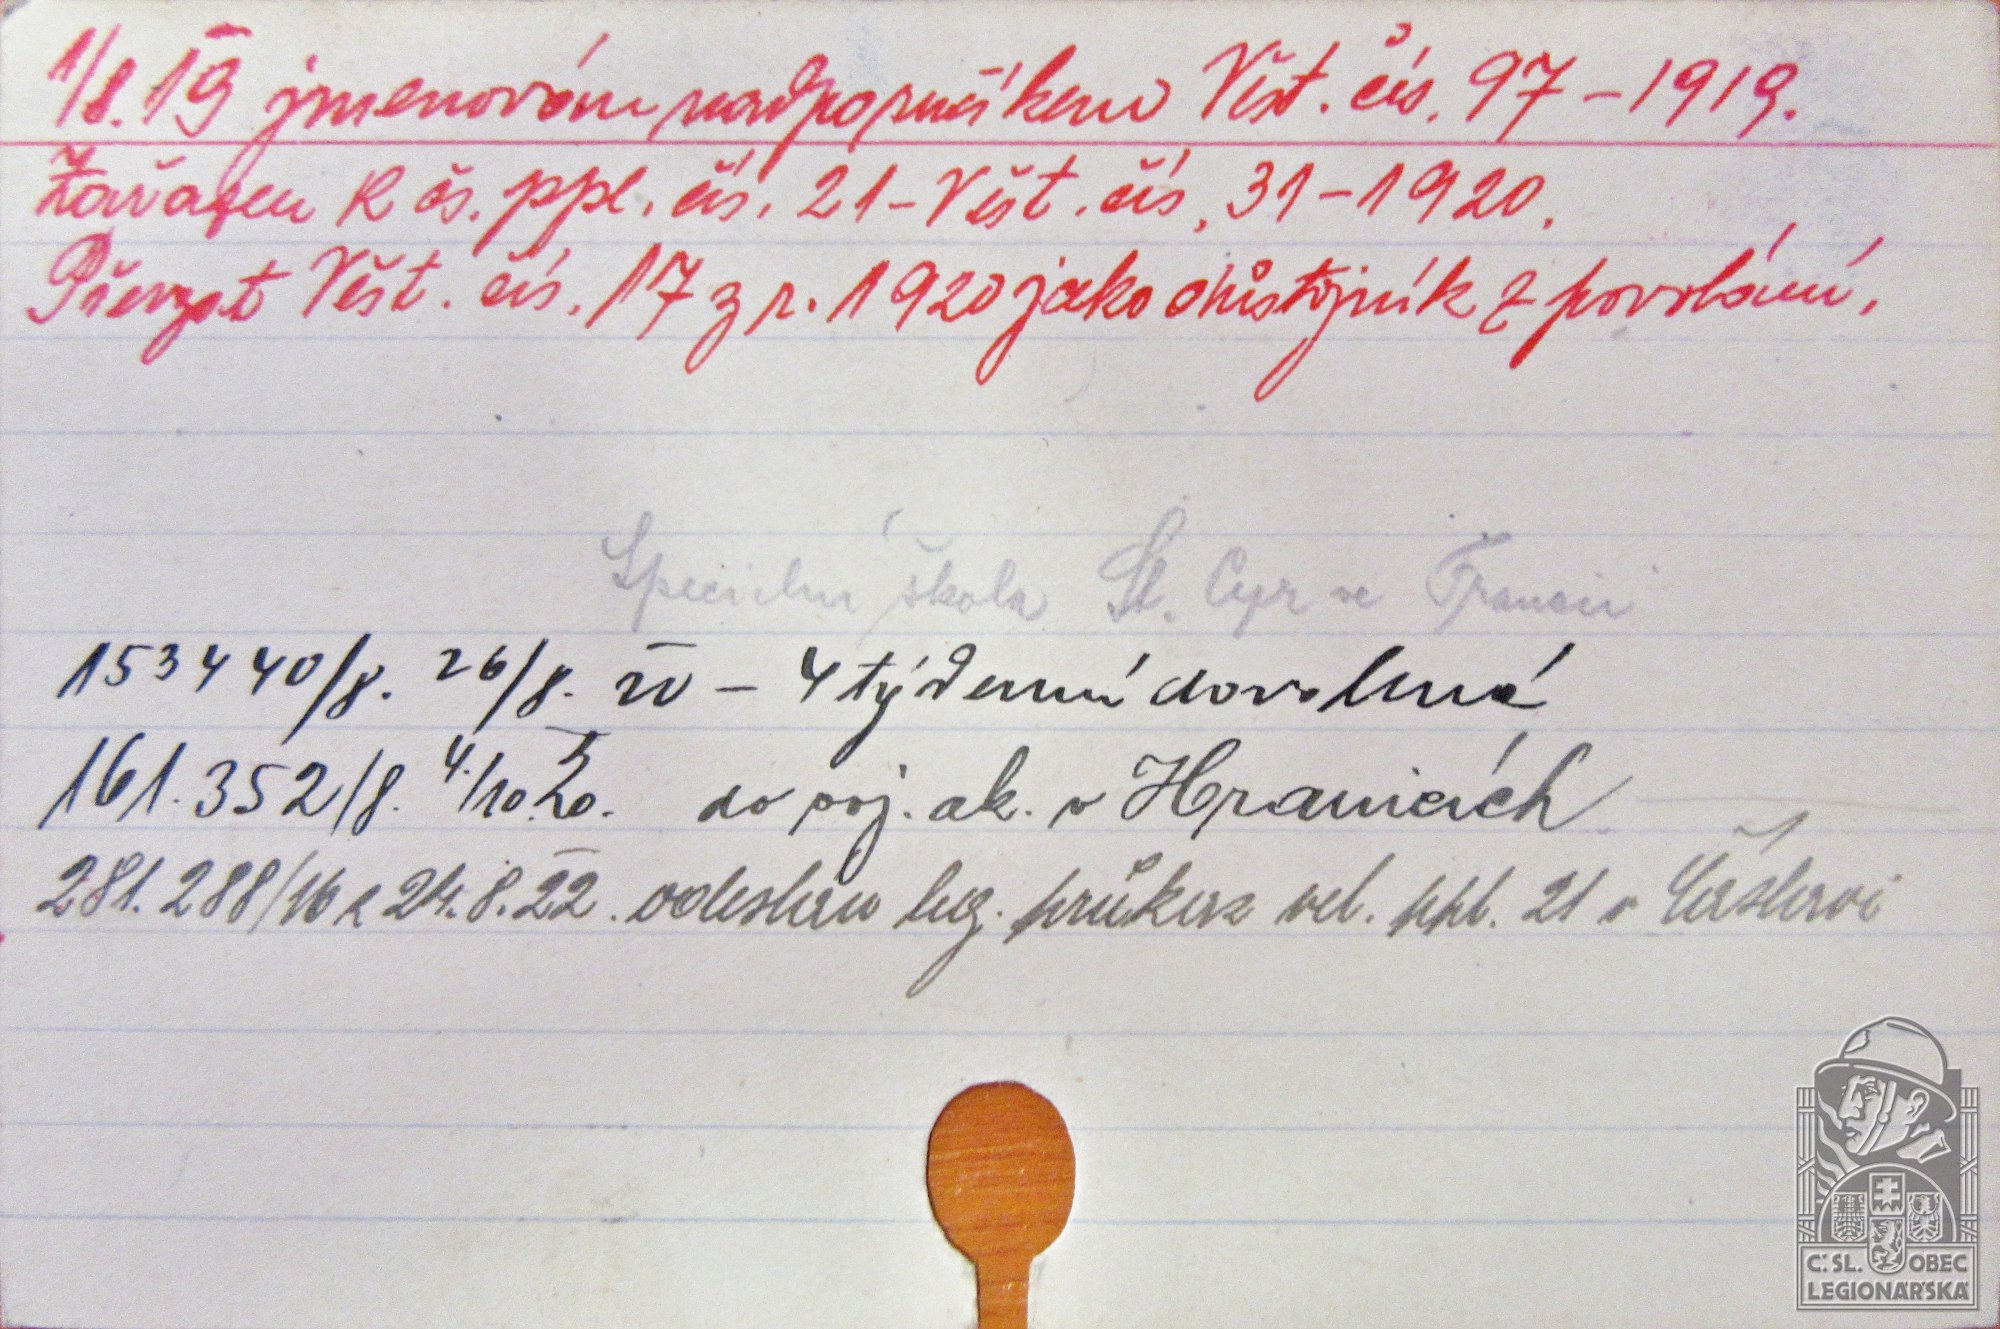 1/8. 19 jmenován nadporučíkem Věst. čís. 97 - 1919.
Zařazen k čs. ppl. čís. 21 - Věst. čís. 31 - 1920.
Převzat Věst. čís. 17 z r. 1920 jako důstojník z povolání.
Specielní škola St. Cyr ve Francii
153440/8. 26/8. 20 - 4 týdenní dovolená
161.352/8. 4./10.20. do voj. ak. v Hranicích
281.288/16 z 24.8.22. odeslán leg. průkaz vel. ppl. 21 v Čáslavi
Č.SL. OBEC
LEGIONÁŘSKÁ